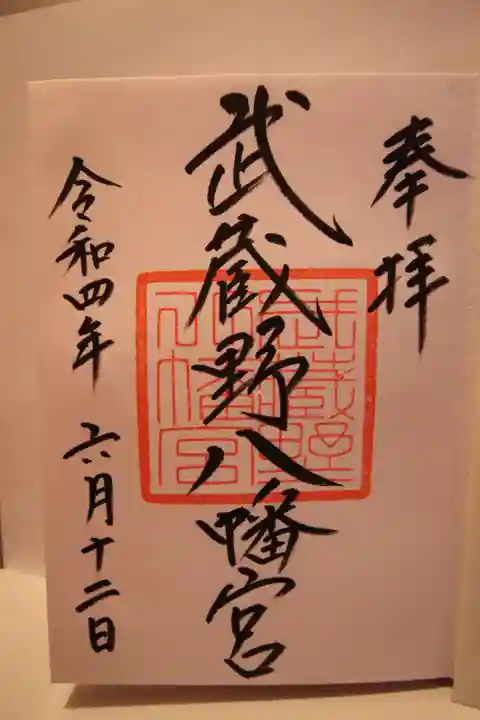 奉拝
武蔵野八幡宮
令和四年 六月十二日
武蔵野
八幡宮